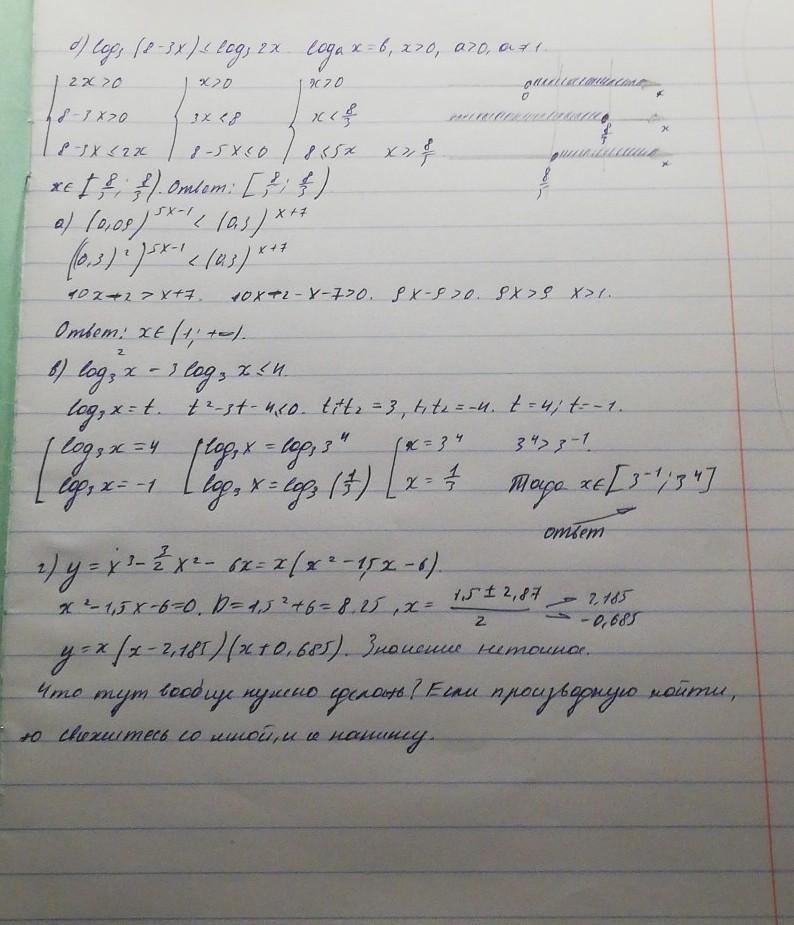 б) log₃ (8-3x) ≤ log₃ 2x  logₐ x = b, x>0, a>0, a≠1.
{ 2x>0  { x>0  { x>0
8-3x>0  3x<8  x< 8/3
8-3x≤2x  8-5x≤0  8≤5x  x≥ 8/5
x∈[ 8/5 ; 8/3 ). Ответ: [ 8/5 ; 8/3 )
а) (0,09)^(5x-1) < (0,3)^(x+7)
((0,3)²)^(5x-1) < (0,3)^(x+7)
10x-2 > x+7.  10x-2-x-7>0.  9x-9>0.  9x>9  x>1.
Ответ: x∈(1; +∞).
в) log₃² x - 3 log₃ x ≤ 4.
log₃ x = t.  t²-3t-4≤0.  t₁+t₂ = 3, t₁t₂ = -4.  t=4; t=-1.
[ log₃ x = 4  [ log₃ x = log₃ 3⁴  [ x = 3⁴  3⁴ > 3⁻¹.
log₃ x = -1  log₃ x = log₃ (1/3)  x = 1/3  Тогда x∈[3⁻¹; 3⁴]
ответ
г) y = x³ - 3/2 x² - 6x = x(x² - 1,5x - 6).
x²-1,5x-6=0. D = 1,5²+6 = 8,25, x = (1,5 ± 2,87)/2 → 2,185
→ -0,685
y = x(x-2,185)(x+0,685). Значение неточное.
Что тут вообще нужно сделать? Если производную найти,
то свяжитесь со мной, и я напишу.